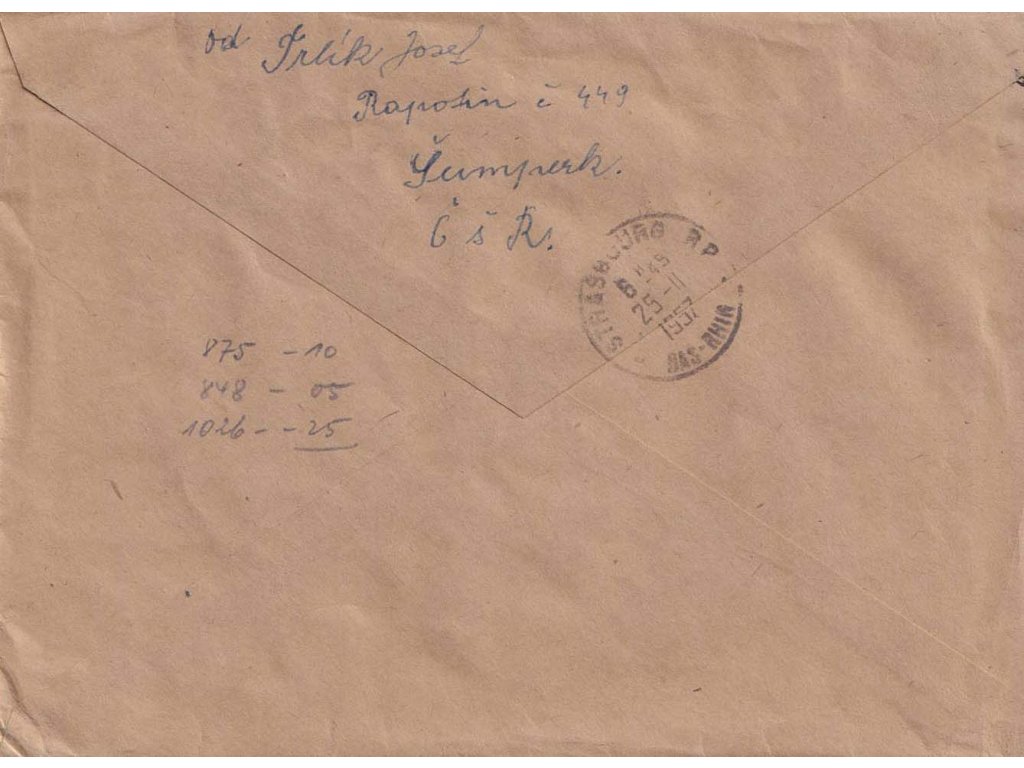 od Trlík Josef
Rapotin č 449
Šumperk.
Č s Ř.
STRASBOURG RP
6 H 45
25-11
1957
BAS-RHIN
875 - 10
848 - 05
1026 - - 25